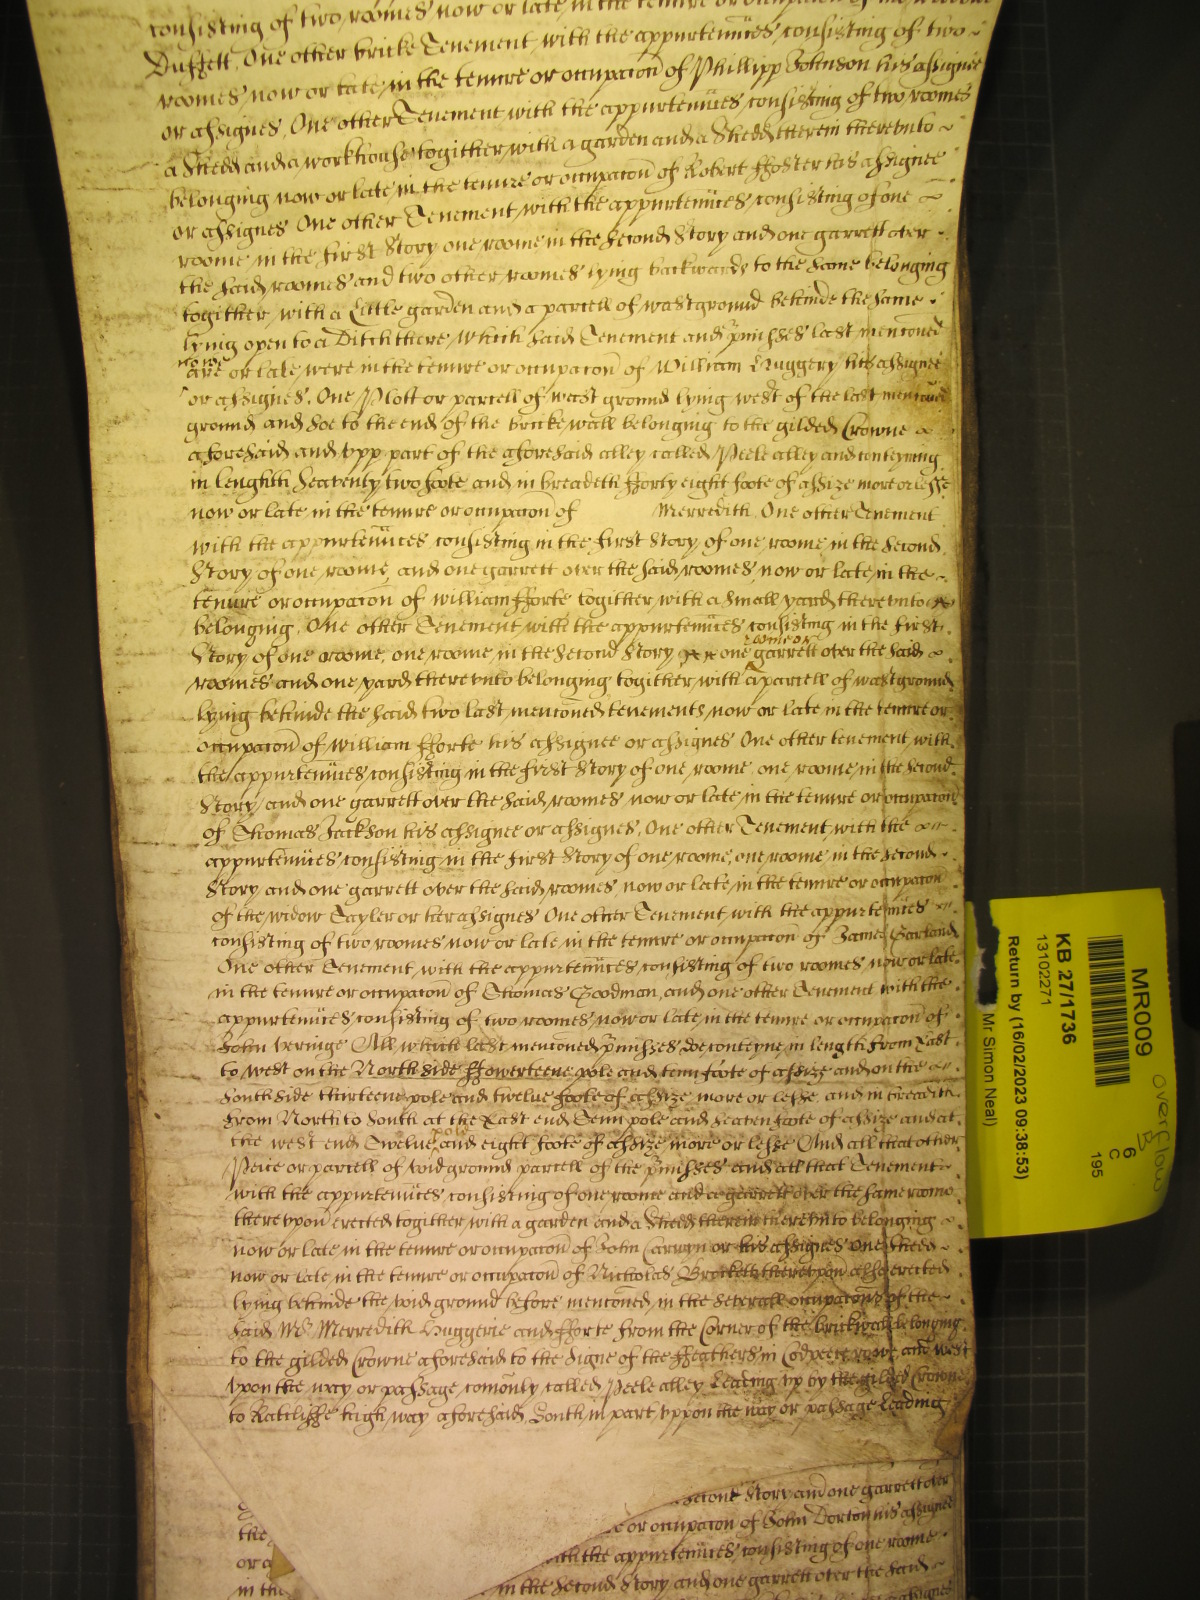 consisting of two roomes now or late in the tenure or occupacon of
Duffett. One other bricke Tenement with the appurtenñces consisting of two
roomes now or late in the tenure or occupacon of Phillipp Johnson his assignee
or assignes. One other Tenement with the appurtenñces consisting of two roomes
a Shedd and a workhouse togither with a garden and a Shedd therein therevnto
belonging now or late in the tenure or occupacon of Robert ffoster his assignee
or assignes One other Tenement with the appurtenñces consisting of one
roome in the first Story one roome in the second Story and one garrett over
the said roomes and two other roomes lying backwards to the same belonging
togither with a Little garden and a parcell of wast ground behinde the same
lying open to a Ditch there, which said Tenement and p̃misses last mencoñed
now
are or late were in the tenure or occupacon of William Huggery his assignee
or assignes. One Plott or parcell of wast ground lying west of the last mencoñed
ground and soe to the end of the bricke wall belonging to the gilded Crowne
aforesaid and vpp part of the aforesaid alley called Peele alley and conteyning
in length Seaventy two foote and in breadeth fforty eight foote of assize more or lesse
now or late in the tenure or occupacon of Merredith. One other Tenement
with the appurtenñces consisting in the first Story of one roome in the second
Story of one roome, and one garrett over the said roomes now or late in the
tenure or occupacon of william fforte togither with a small yard therevnto
belonging. One other Tenement with the appurtenñces consisting in the first
roome or
Story of one roome, one roome in the second Story one garrett over the said
roomes and one yard therevnto belonging togither with a parcell of wast ground
lying behinde the said two last mencoñed tenements now or late in the tenure or
occupacon of william fforte his assignee or assignes One other tenement with
the appurtenñces consisting in the first Story of one roome, one roome in the second
Story and one garrett over the said roomes now or late in the tenure or occupacon
of Thomas Jackson his assignee or assignes. One other Tenement with the
appurtenñces consisting in the first Story of one roome, one roome in the second
Story and one garrett over the said roomes now or late in the tenure or occupacon
of the widow Tayler or her assignes One other Tenement with the appurtenñces
consisting of two roomes now or late in the tenure or occupacon of James Garland
One other Tenement with the appurtenñces consisting of two roomes now or late
in the tenure or occupacon of Thomas Goodman, and one other Tenement with the
appurtenñces consisting of two roomes now or late in the tenure or occupacon of
John All which last mencoñed p̃misses doe conteyne in length from East
to west on the North side ffowerteene pole and tenn foote of assize and on the
South side thirteene pole and twelue foote of assize more or lesse, and in breadth
from North to South at the East end Tenn pole and seaven foote of assize and at
pole
the west end Twelue and eight foote of assize more or lesse And all that other
Peice or parcell of void ground parcell of the p̃misses and all that Tenement
with the appurtenñces consisting of one roome and a garrett over the same roome
therevpon erected togither with a garden and a Shedd therein therevnto belonging
now or late in the tenure or occupacon of John Carwyn or his assignes One Shedd
now or late in the tenure or occupacon of Nicholas Brockett therevpon also erected
lying behinde the void ground before mencoñed, in the severall occupacons of the
said Merredith Huggerie and fforte from the Corner of the brickwall belonging
to the gilded Crowne aforesaid to the Signe of the ffeathers in Codpeece rowe and west
vpon the way or passage, comonly called Peele alley Leading vp by the gilded Crowne
to Ratcliffe high way aforesaid, South in part vppon the way or passage Leading
second Story and one garrett over
the or occupacon of John Dorton his assignee
or a with the appurtenñces consisting of one roome
in the in the second Story and one garrett over the said
MR009
Overflow
Blow
6
C
195
KB 27/1736
13102271
Return by (16/02/2023 09:38:53)
Mr Simon Neal)